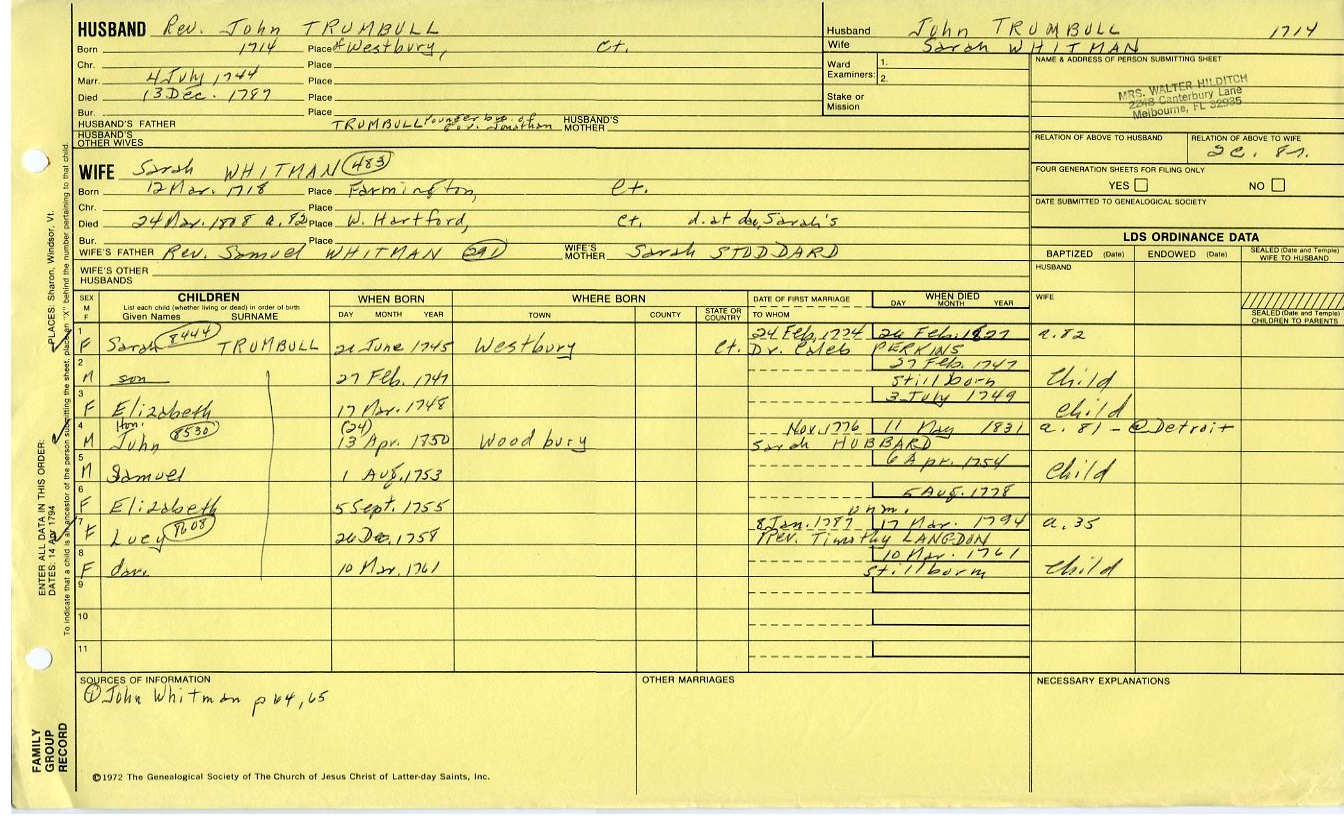 HUSBAND Rev. John TRUMBULL
Born 1714 Place of Westbury, Ct.
Chr. Place
Marr. 4 July 1744 Place
Died 13 Dec. 1787 Place
Bur. Place
HUSBAND'S FATHER TRUMBULL younger bro. of Gov. Jonathan HUSBAND'S MOTHER
HUSBAND'S OTHER WIVES
Husband John TRUMBULL 1714
Wife Sarah WHITMAN
Ward Examiners: 1. 2.
Stake or Mission
NAME & ADDRESS OF PERSON SUBMITTING SHEET
MRS. WALTER HILDITCH
2248 Canterbury Lane
Melbourne, FL 32935
RELATION OF ABOVE TO HUSBAND
RELATION OF ABOVE TO WIFE
FOUR GENERATION SHEETS FOR FILING ONLY
YES NO
DATE SUBMITTED TO GENEALOGICAL SOCIETY
WIFE Sarah WHITMAN 483
Born 12 Mar. 1718 Place Farmington, Ct.
Chr. Place
Died 24 Mar. 1808 a. 82 Place W. Hartford, Ct. d. at dau. Sarah's
Bur. Place
WIFE'S FATHER Rev. Samuel WHITMAN WIFE'S MOTHER Sarah STODDARD
WIFE'S OTHER HUSBANDS
LDS ORDINANCE DATA
BAPTIZED (Date) ENDOWED (Date) SEALED (Date and Temple) WIFE TO HUSBAND
HUSBAND
WIFE
SEALED (Date and Temple) CHILDREN TO PARENTS
SEX M F
CHILDREN
List each child (whether living or dead) in order of birth
Given Names SURNAME
WHEN BORN
DAY MONTH YEAR
WHERE BORN
TOWN COUNTY STATE OR COUNTRY
DATE OF FIRST MARRIAGE
TO WHOM
WHEN DIED
DAY MONTH YEAR
1 24 Feb. 1774 26 Feb. 1827 a. 82
F Sarah 8444 TRUMBULL 20 June 1745 Westbury Ct. Dr. Caleb PERKINS
2 27 Feb. 1747
M son 27 Feb. 1747 Stillborn Child
3 3 July 1749
F Elizabeth 17 Mar. 1748 Child
4 Hon. (24) Nov. 1776 11 May 1831 a. 81 - @ Detroit
M John 8530 13 Apr. 1750 Woodbury Sarah HUBBARD
5 6 Apr. 1754
M Samuel 1 Aug. 1753 Child
6 5 Aug. 1778
F Elizabeth 5 Sept. 1755 unm.
7 8 Jan. 1787 17 Mar. 1794 a. 35
F Lucy 8608 26 Dec. 1758 Rev. Timothy LANGDON
8 10 Mar. 1761
F dau. 10 Mar. 1761 Stillborn Child
9
10
11
SOURCES OF INFORMATION
① John Whitman p 64, 65
OTHER MARRIAGES
NECESSARY EXPLANATIONS
©1972 The Genealogical Society of The Church of Jesus Christ of Latter-day Saints, Inc.
FAMILY GROUP RECORD
ENTER ALL DATA IN THIS ORDER:
DATES: 14 Apr 1794
PLACES: Sharon, Windsor, Vt.
To indicate that a child is an ancestor of the person submitting the sheet, place an "X" behind the number pertaining to that child.